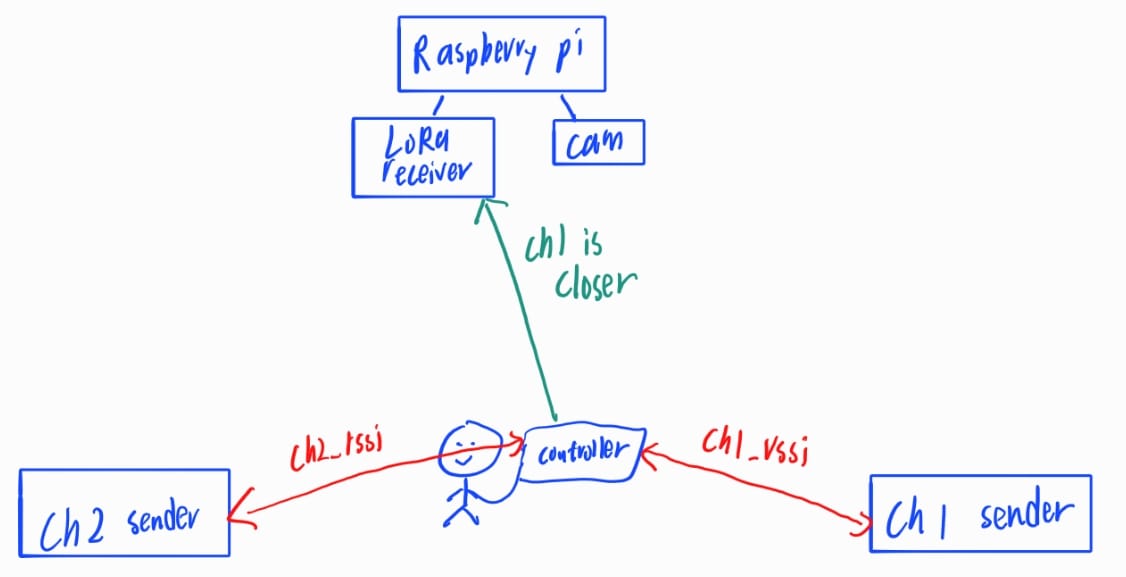 Raspberry pi
LoRa
receiver
cam
ch1 is
closer
ch2_rssi
controller
ch1_rssi
Ch2 sender
Ch1 sender